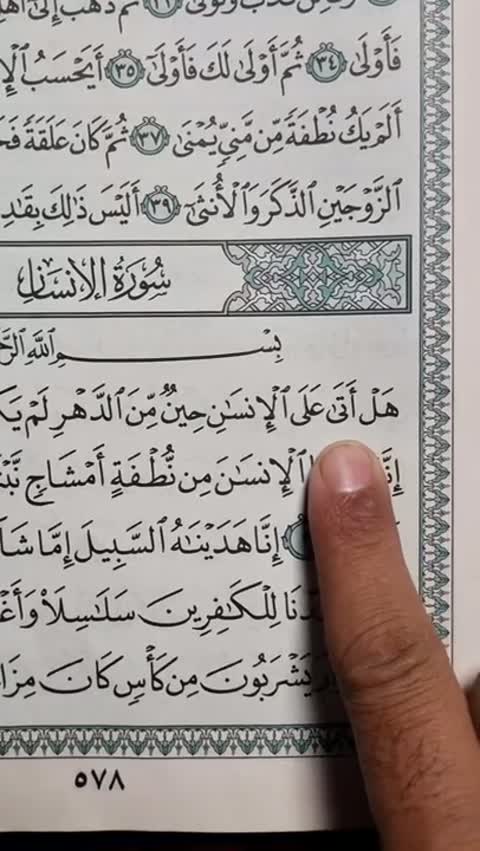 ثُمَّ ذَهَبَ إِلَىٰٓ
فَأَوۡلَىٰ ٣٤ ثُمَّ أَوۡلَىٰ لَكَ فَأَوۡلَىٰٓ ٣٥ أَيَحۡسَبُ
أَلَمۡ يَكُ نُطۡفَةٗ مِّن مَّنِيّٖ يُمۡنَىٰ ٣٧ ثُمَّ كَانَ عَلَقَةٗ
ٱلزَّوۡجَيۡنِ ٱلذَّكَرَ وَٱلۡأُنثَىٰٓ ٣٩ أَلَيۡسَ ذَٰلِكَ
سُورَةُ الإِنسَانِ
بِسۡمِ ٱللَّهِ
هَلۡ أَتَىٰ عَلَى ٱلۡإِنسَٰنِ حِينٞ مِّنَ ٱلدَّهۡرِ لَمۡ
ٱلۡإِنسَٰنَ مِن نُّطۡفَةٍ أَمۡشَاجٖ
إِنَّا هَدَيۡنَٰهُ ٱلسَّبِيلَ إِمَّا
لِلۡكَٰفِرِينَ سَلَٰسِلَاْ
يَشۡرَبُونَ مِن كَأۡسٖ كَانَ
٥٧٨